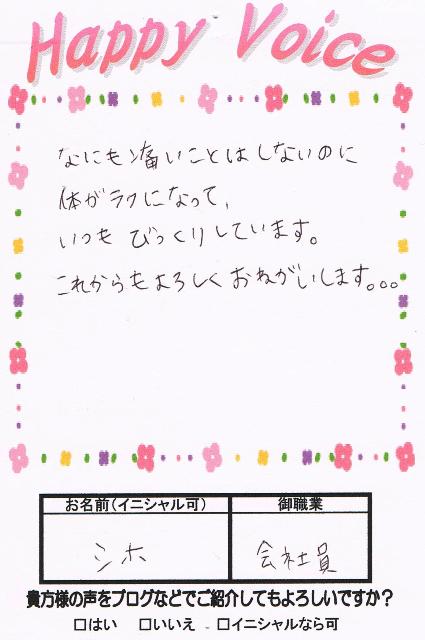 Happy Voice
なにも痛いことはしないのに
体がラクになって、
いつも びっくりしています。
これからもよろしくおねがいします。。。
お名前(イニシャル可)
御職業
シホ
会社員
貴方様の声をブログなどでご紹介してもよろしいですか？
□はい □いいえ □イニシャルなら可